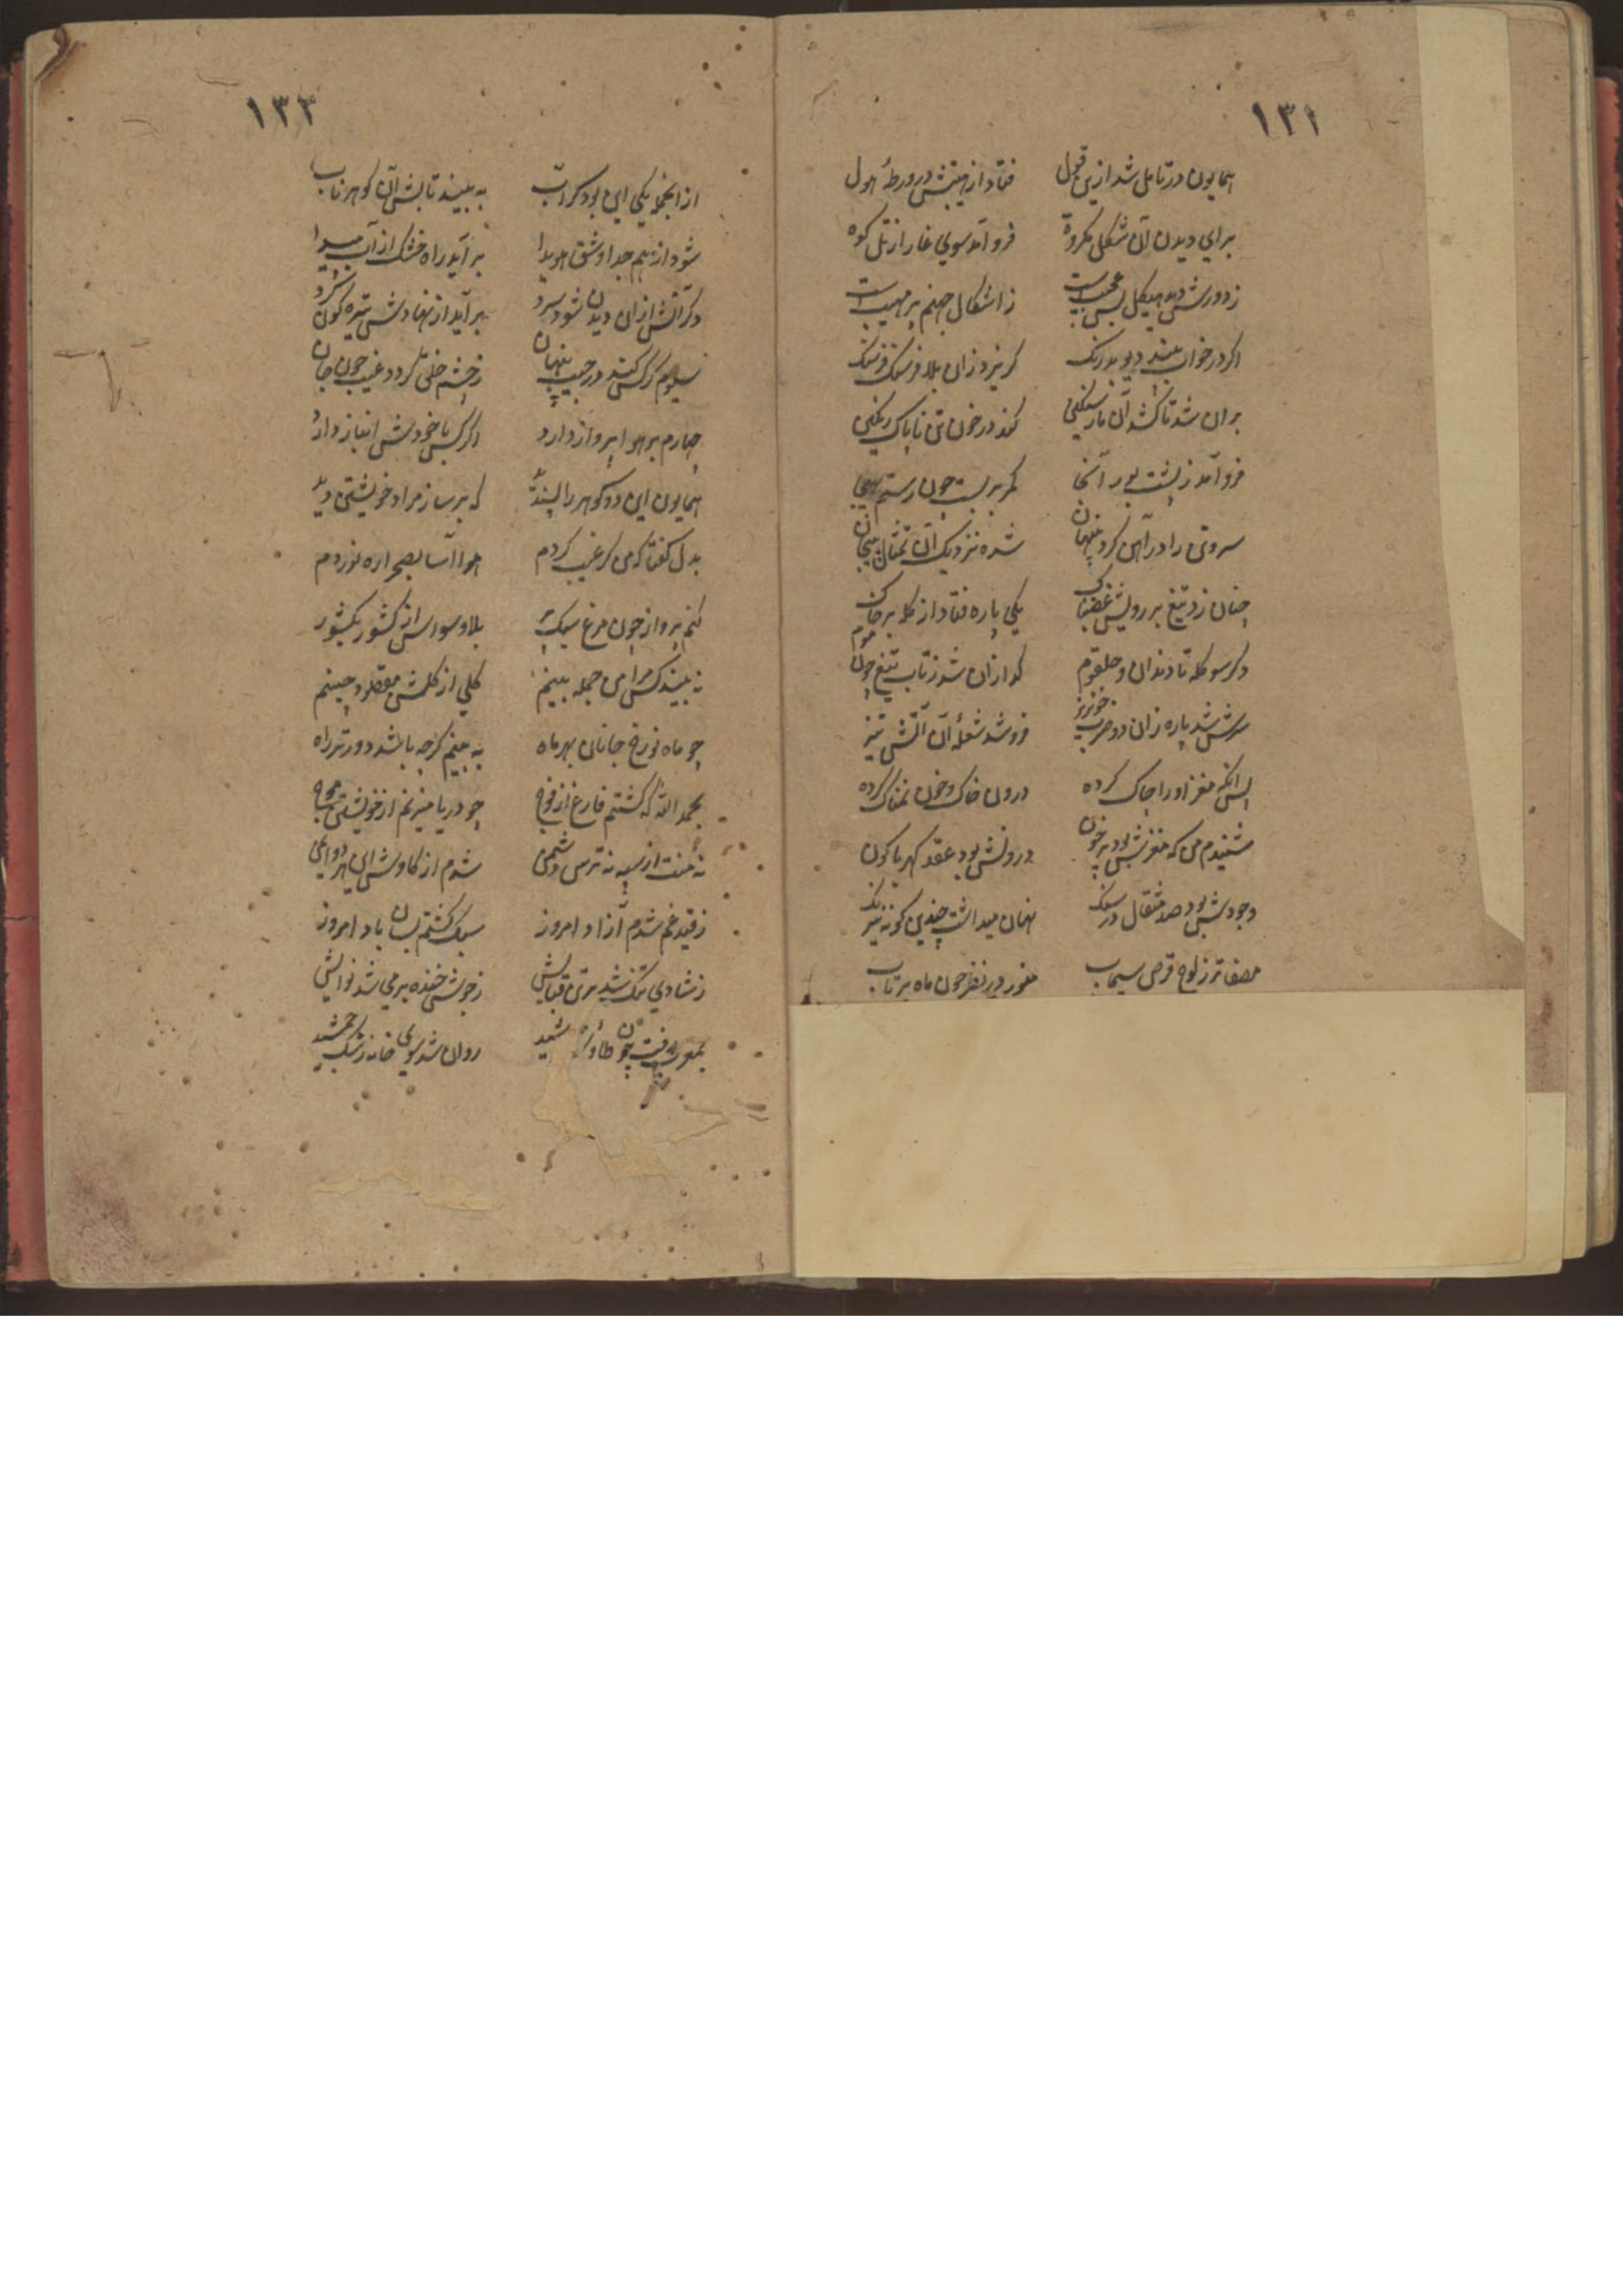 ١٣١
همایون در تامل شد ازین قول فتاد از هیبتش در ورطهٔ هول
برای دیدن آن شکل مکروه فرو آمد سوی غار از تل کوه
ز دورش دید هیکل بس عجیبست ز اشکال جهنم پر مهیبست
اکر در خواب بیند دیو بدرنک کریزد زان بلا فرسنک فرسنک
بران شد تا کشد آن مار سنکین کند در خون تن ناپاک رنکین
فرو آمد ز پشت بور آنجا کمر بربست چون رستم بهیجا
سروتن را در آهن کرد پنهان شده نزدیک آن تمثال بیجان
چنان زد تیغ بر رویش غضبناک یکی پاره فتاد از کله بر خاک
دکر سو کله تا دندان و حلقوم کدازان شد ز تاب تیغ چون موم
سرش شد پاره زان دو ضرب خونریز فرو شد شعلهٔ آن آتش تیز
پس انکه مغز او را چاک کرده درون خاک و خون نمناک کرده
شنیدم من که مغزش بود پر خون درونش بود عقد کهربا کون
وجودش بود صد مثقال در سنک نهان میداشت چندین کونه نیرنک
مصفاتر ز لوح قرص سیماب منور در نظر چون ماه پرتاب
١٣٣
ازانجمله یکی این بود کز آب به بیند تابش آن کوهر ناب
شود از هم جدا و شق هویدا بر آید راه خشک از آب پیدا
دکر آتش ازان دیدن شود سرد بر آید از نهادش تیره کون کرد
سیوم کر کس کند در جیب پنهان ز چشم خلق کردد غیب چون جان
چهارم بر هوا پرواز دارد اکر کس با خودش انباز دارد
همایون این دو کوهر را پسندید که برساز مراد خویشتن دید
بدل کفتا که من کر غیب کردم هوا آسا بصحرا ره نوردم
کنم پرواز چون مرغ سبک پر بلا وسواس از کشور بکشور
نه بیند کس مرا من جمله بینم کلی از کلشن مقصود چینم
چو ماه نو رخ جانان بهر ماه به بینم کرچه باشد دورتر راه
بحمد الله که کشتم فارغ از فوج چو دریا میزنم از خویشتن موج
نه منت از سپه نه ترس دشمن شدم از کاوش این هردو ایمن
ز قید غم شدم آزاد امروز سبک کشتم بسان باد امروز
ز شادی تنک شد بر تن قبایش ز جوش خنده پر می شد نوایش
چون طاوس روان شد سوی خانه رشک جمشید